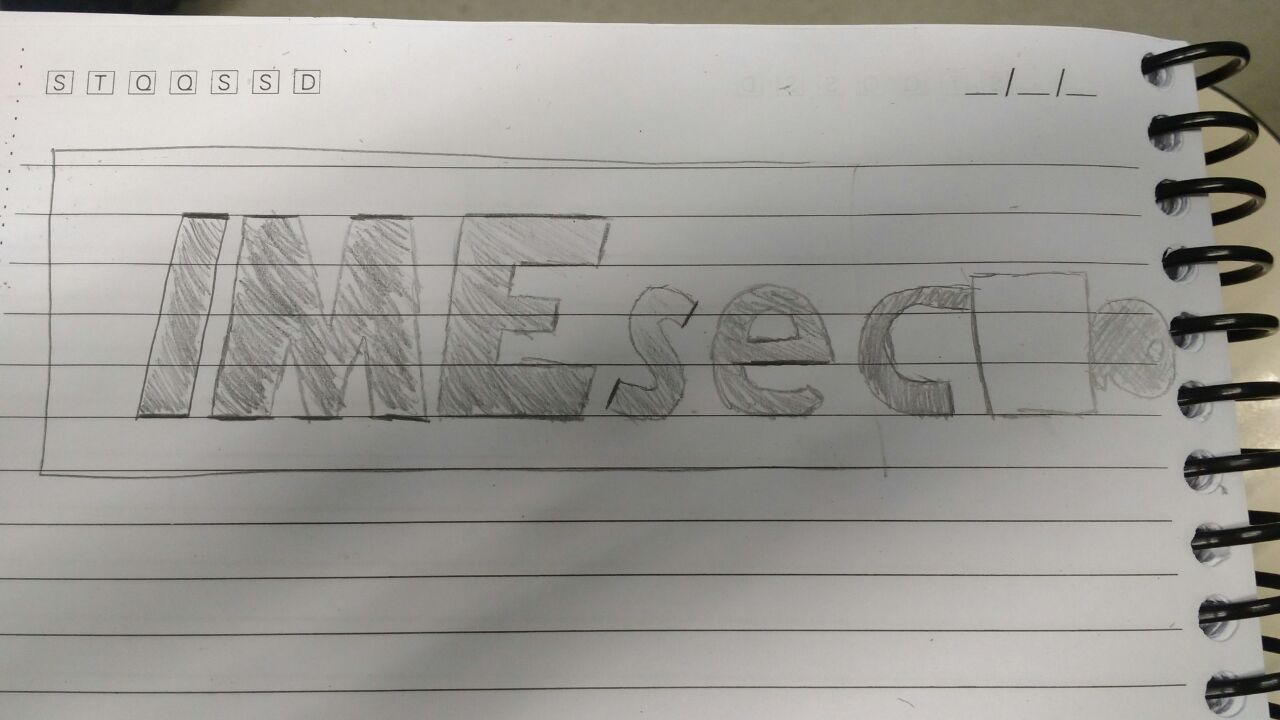 S T Q Q S S D _/_/_
IMEsec